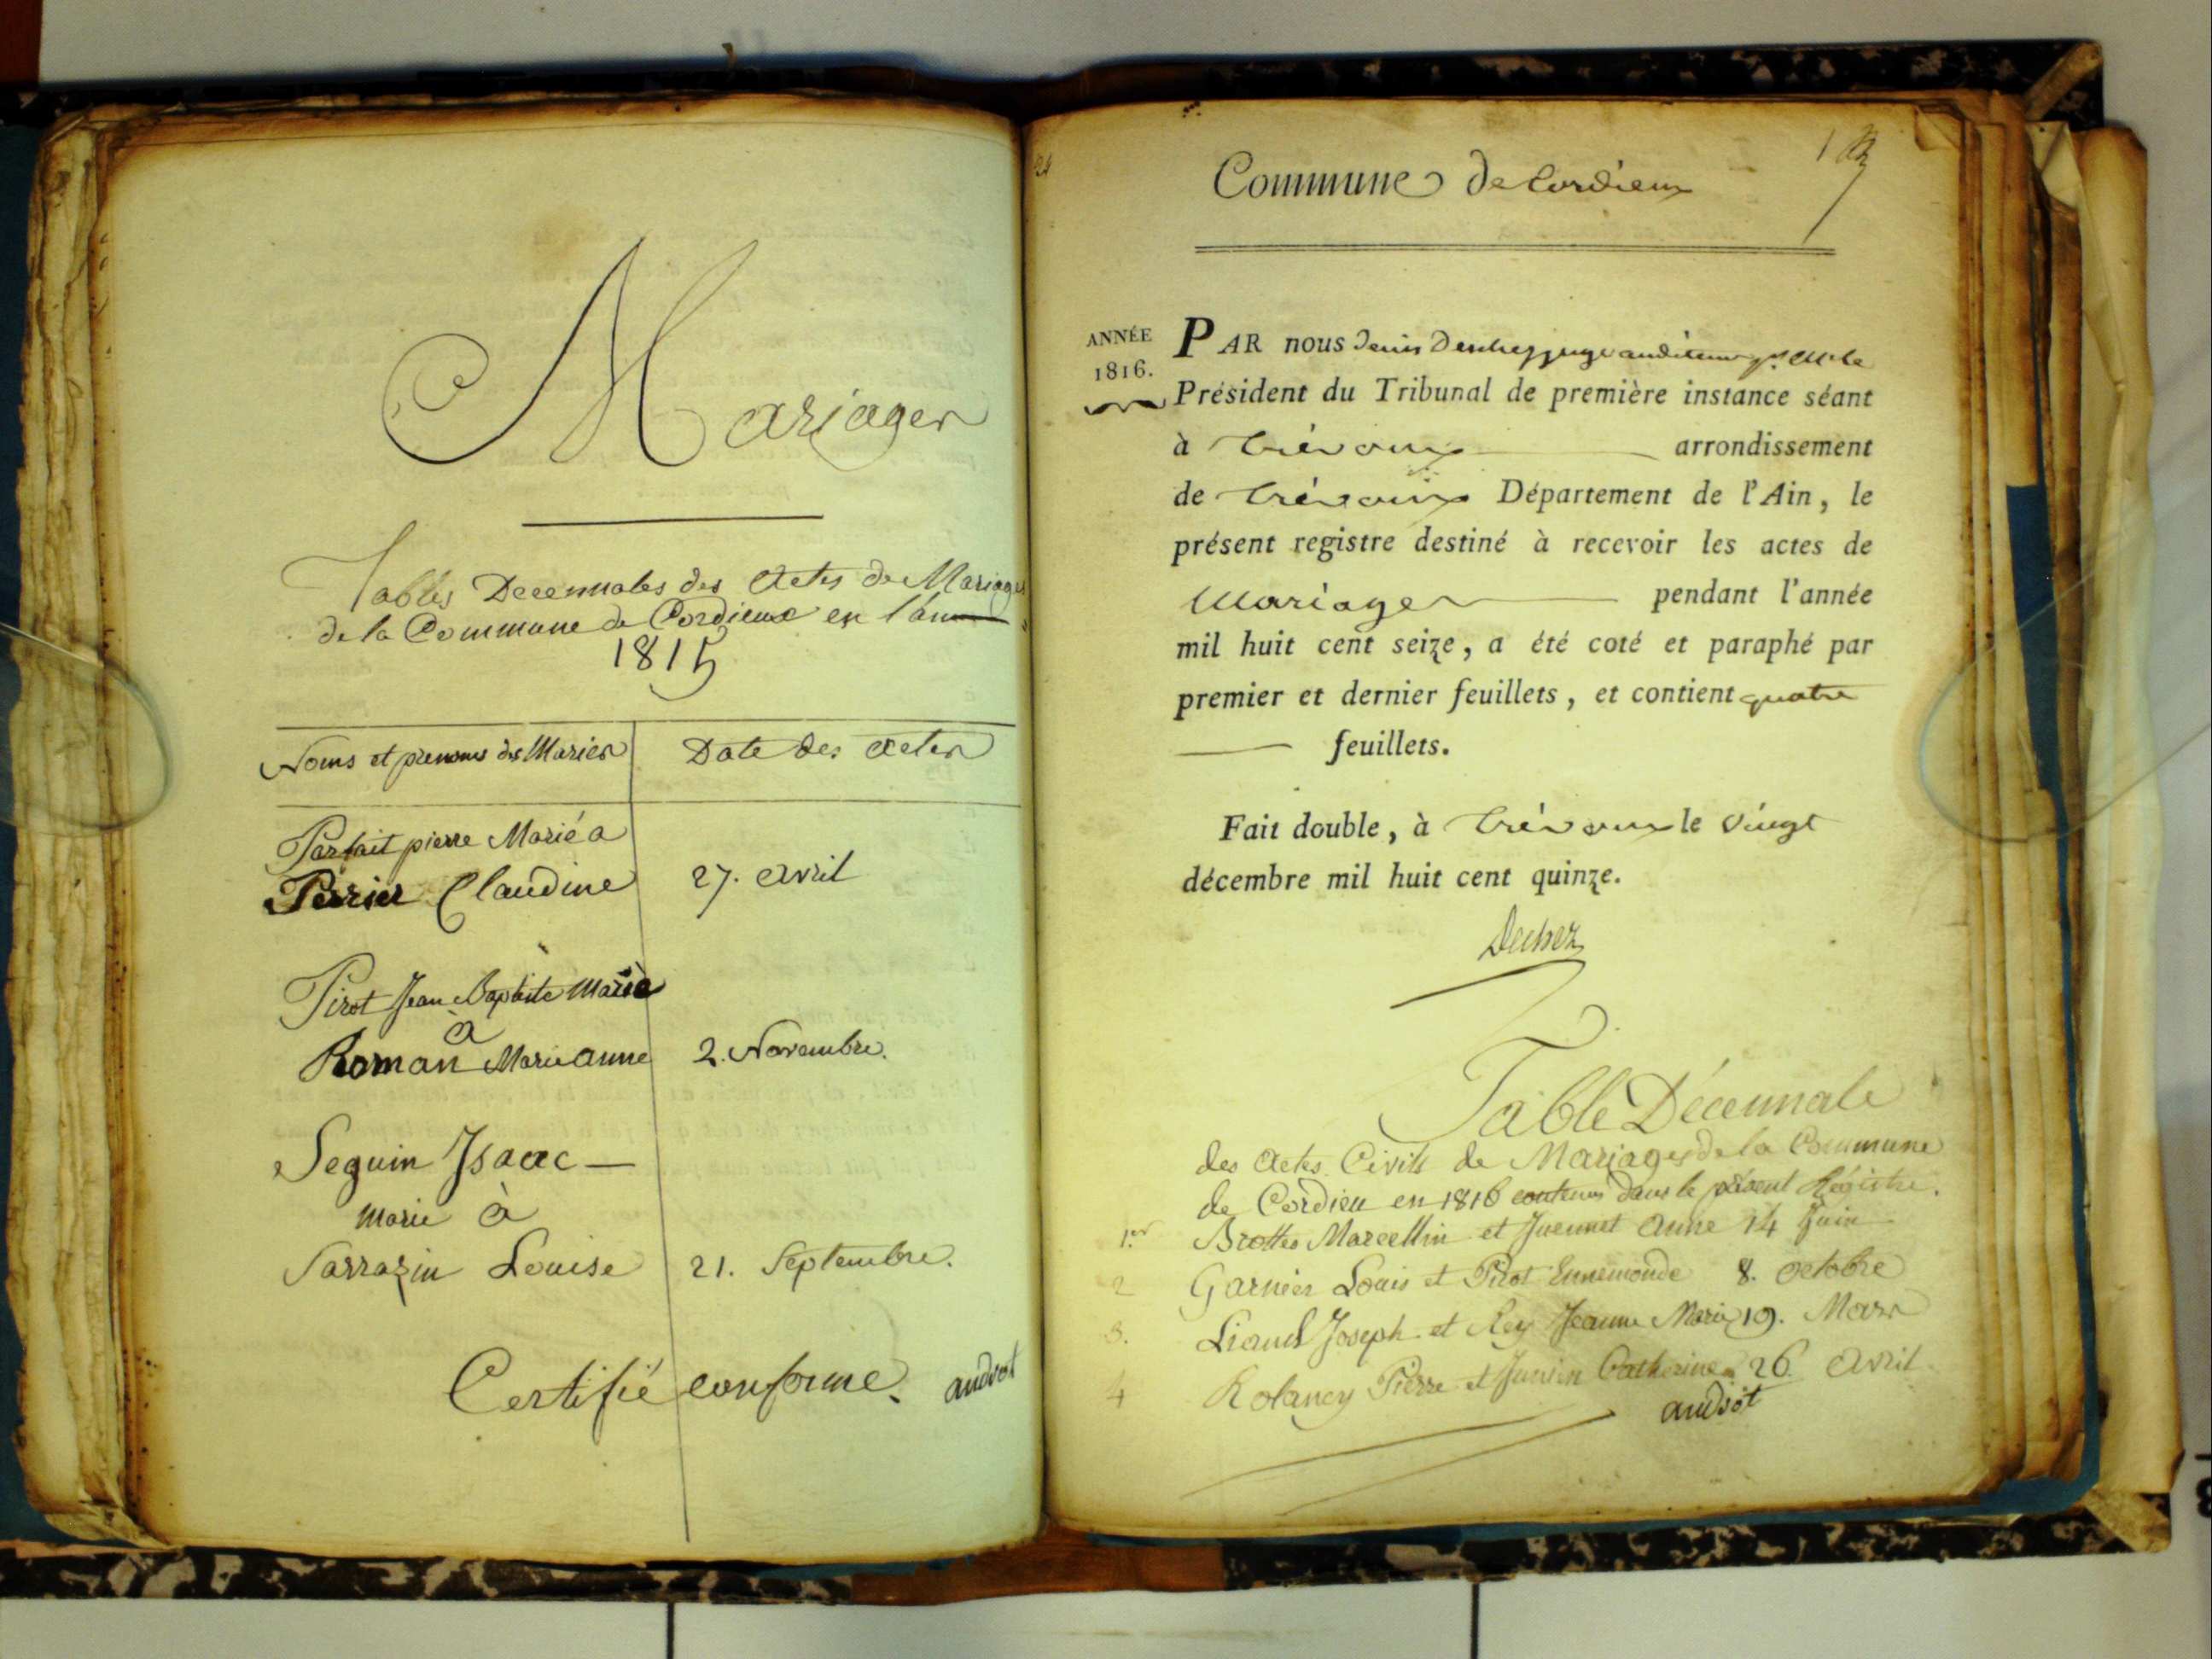 Mariages
Tables Decennales des Actes de Mariages
de la Commune de Cordieux en l'an
1815
Noms et prenoms des Mariés
Date des Actes
Parfait pierre Marié a
Perrier Claudine
27. Avril
Pirot Jean Baptiste Marié
à
Roman Marie anne
2. Novembre.
Seguin Isaac —
Marie à
Sarrazin Louise
21. Septembre.
Certifié conforme.
audiot
Commune de Cordieux
1
ANNÉE
1816.
PAR nous Denis Deschez juge auditeur pr. Mr le
Président du Tribunal de première instance séant
à Trévoux arrondissement
de Trévoux Département de l'Ain, le
présent registre destiné à recevoir les actes de
Mariages pendant l'année
mil huit cent seize, a été coté et paraphé par
premier et dernier feuillets, et contient quatre
feuillets.
Fait double, à Trévoux le vingt
décembre mil huit cent quinze.
Dechez
Table Décennale
des Actes Civils de Mariages de la Commune
de Cordieu en 1816 contenus dans le présent Régistre.
1er Brottes Marcellin et Juennet Anne 14 Juin
2 Garnier Louis et Pirot Ennemonde 8. octobre
3. Liaud Joseph et Rey Jeanne Marie 19. Mars
4 Rolancy Pierre et Catherine 26. Avril
audiot